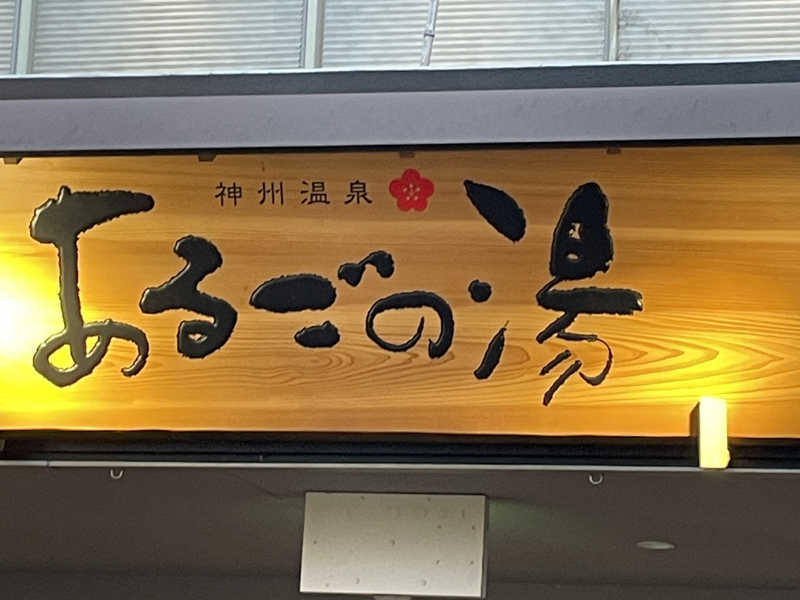 神州温泉
あるごの湯